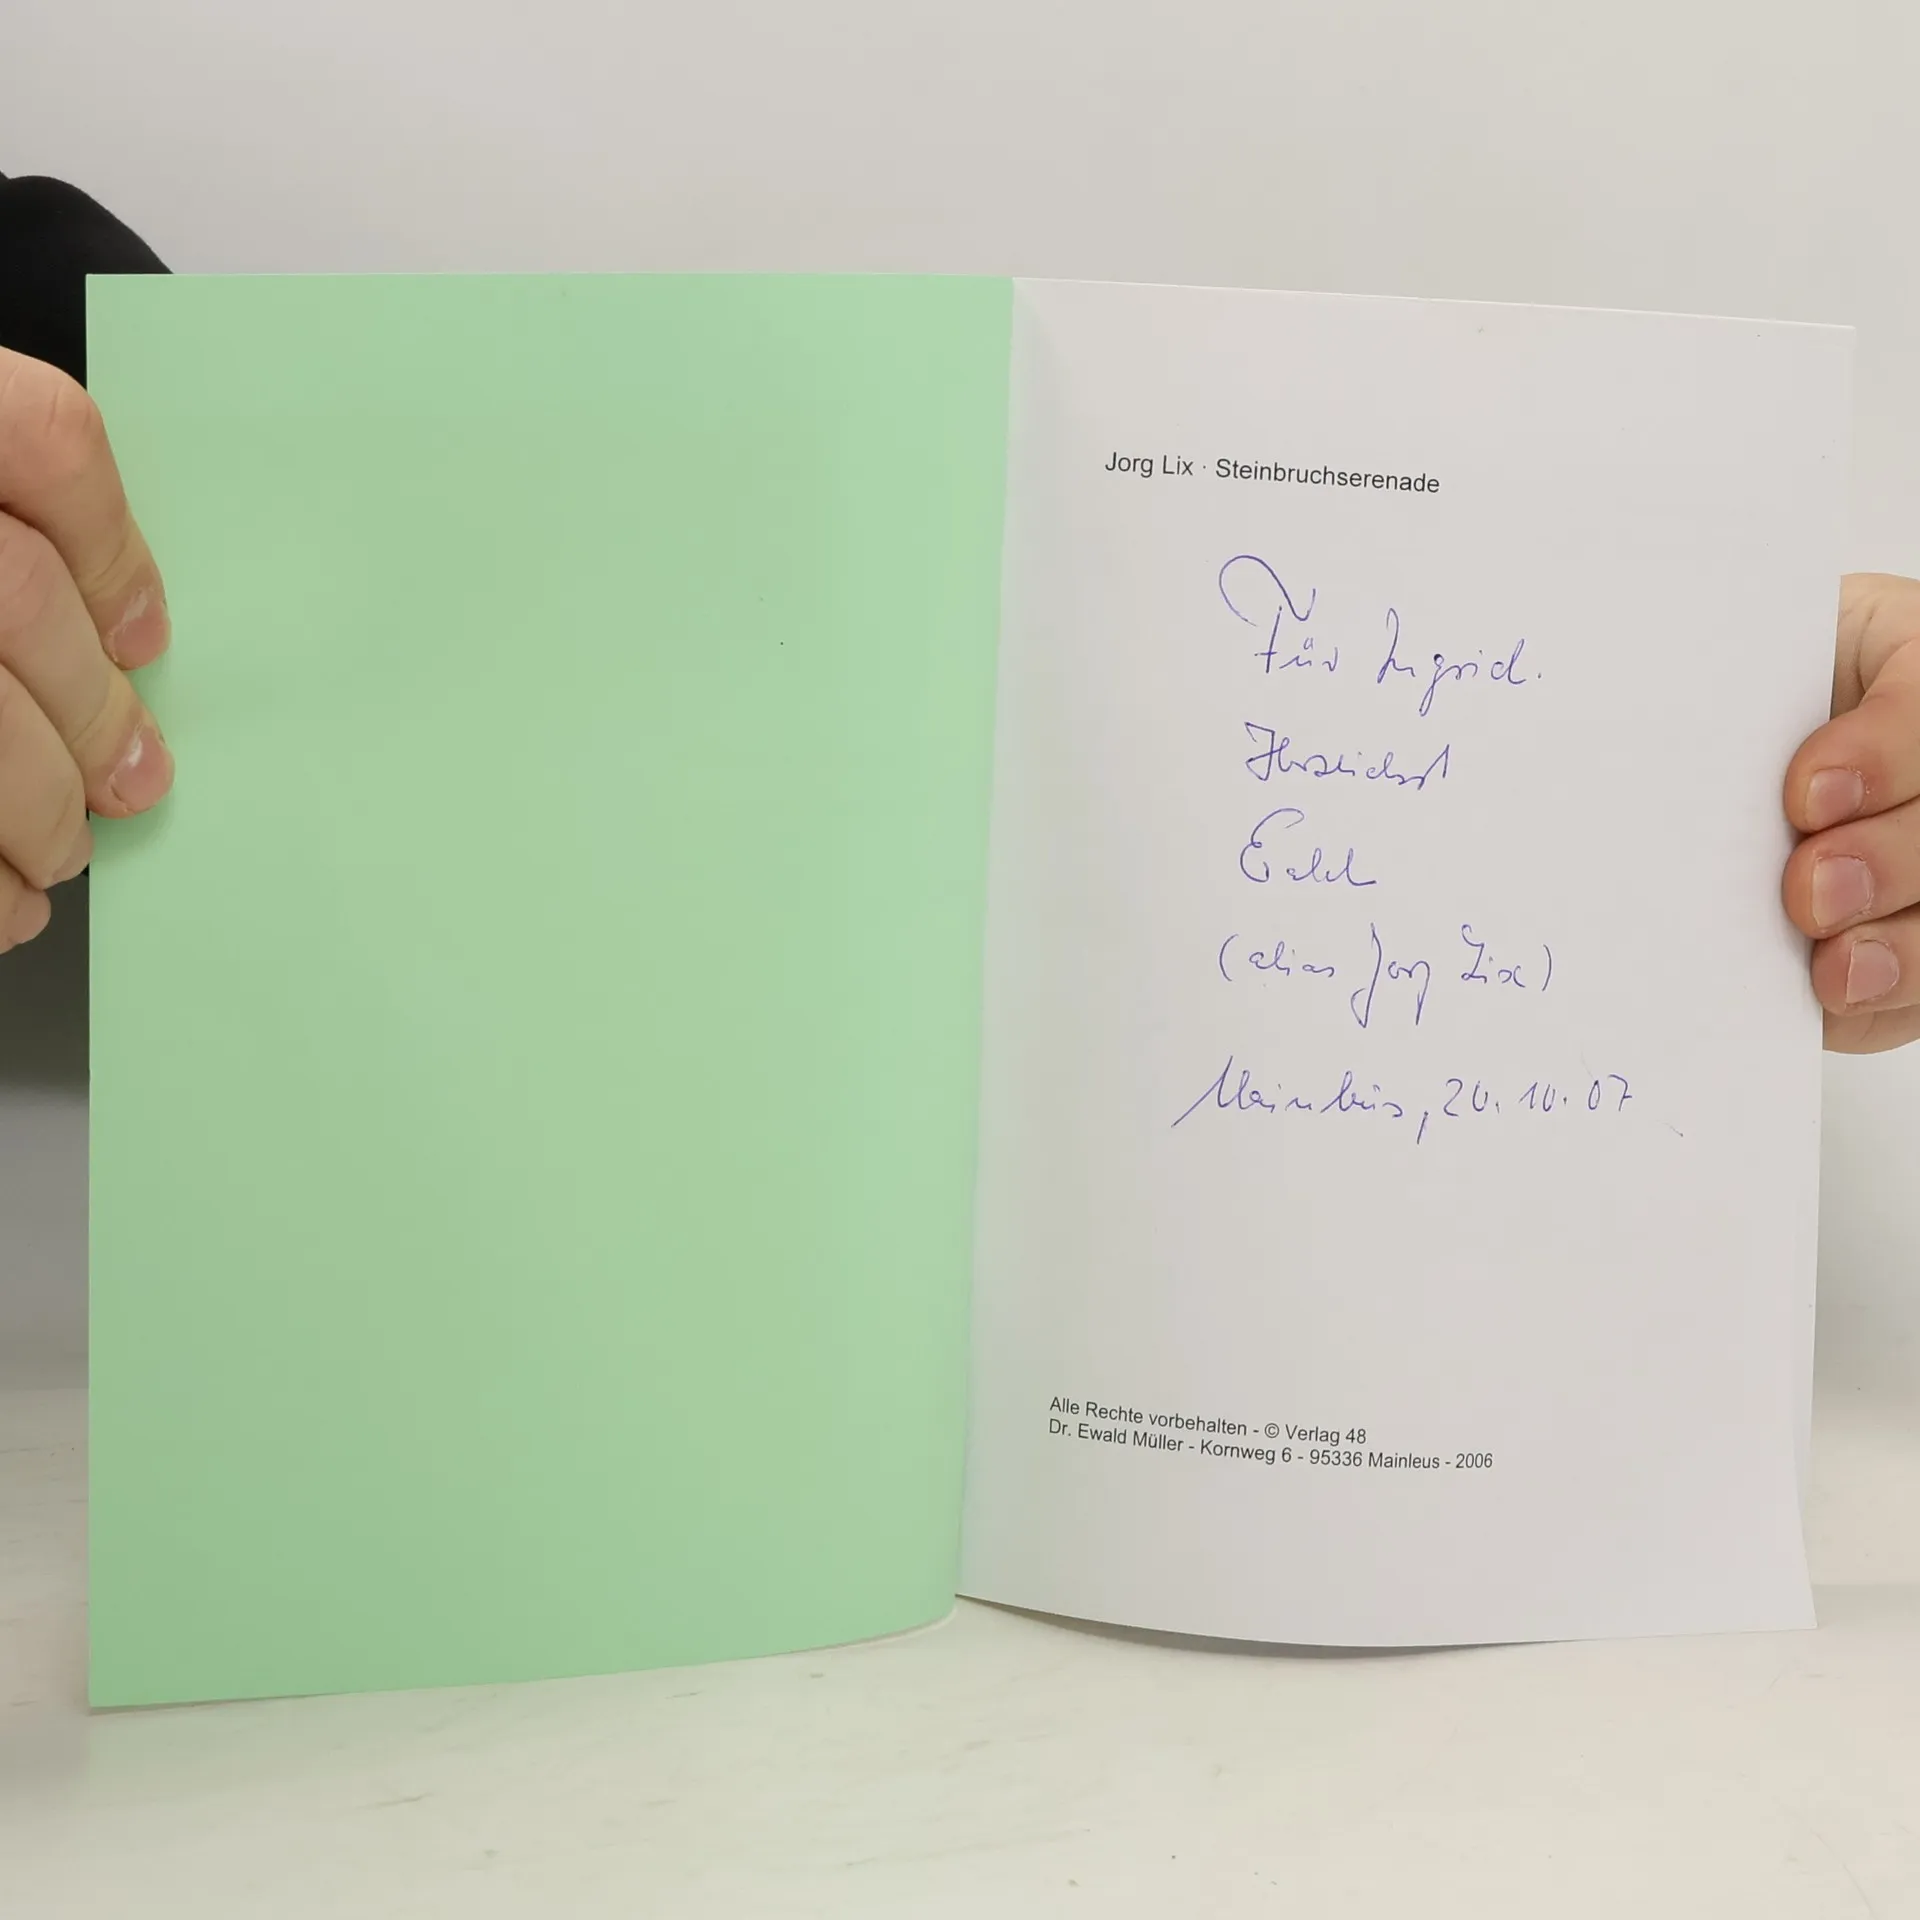 Jorg Lix · Steinbruchserenade
Für Ingrid.
Herzlichst
Ewald
(alias Jorg Lix)
Mainleus, 20.10.07
Alle Rechte vorbehalten - © Verlag 48
Dr. Ewald Müller - Kornweg 6 - 95336 Mainleus - 2006